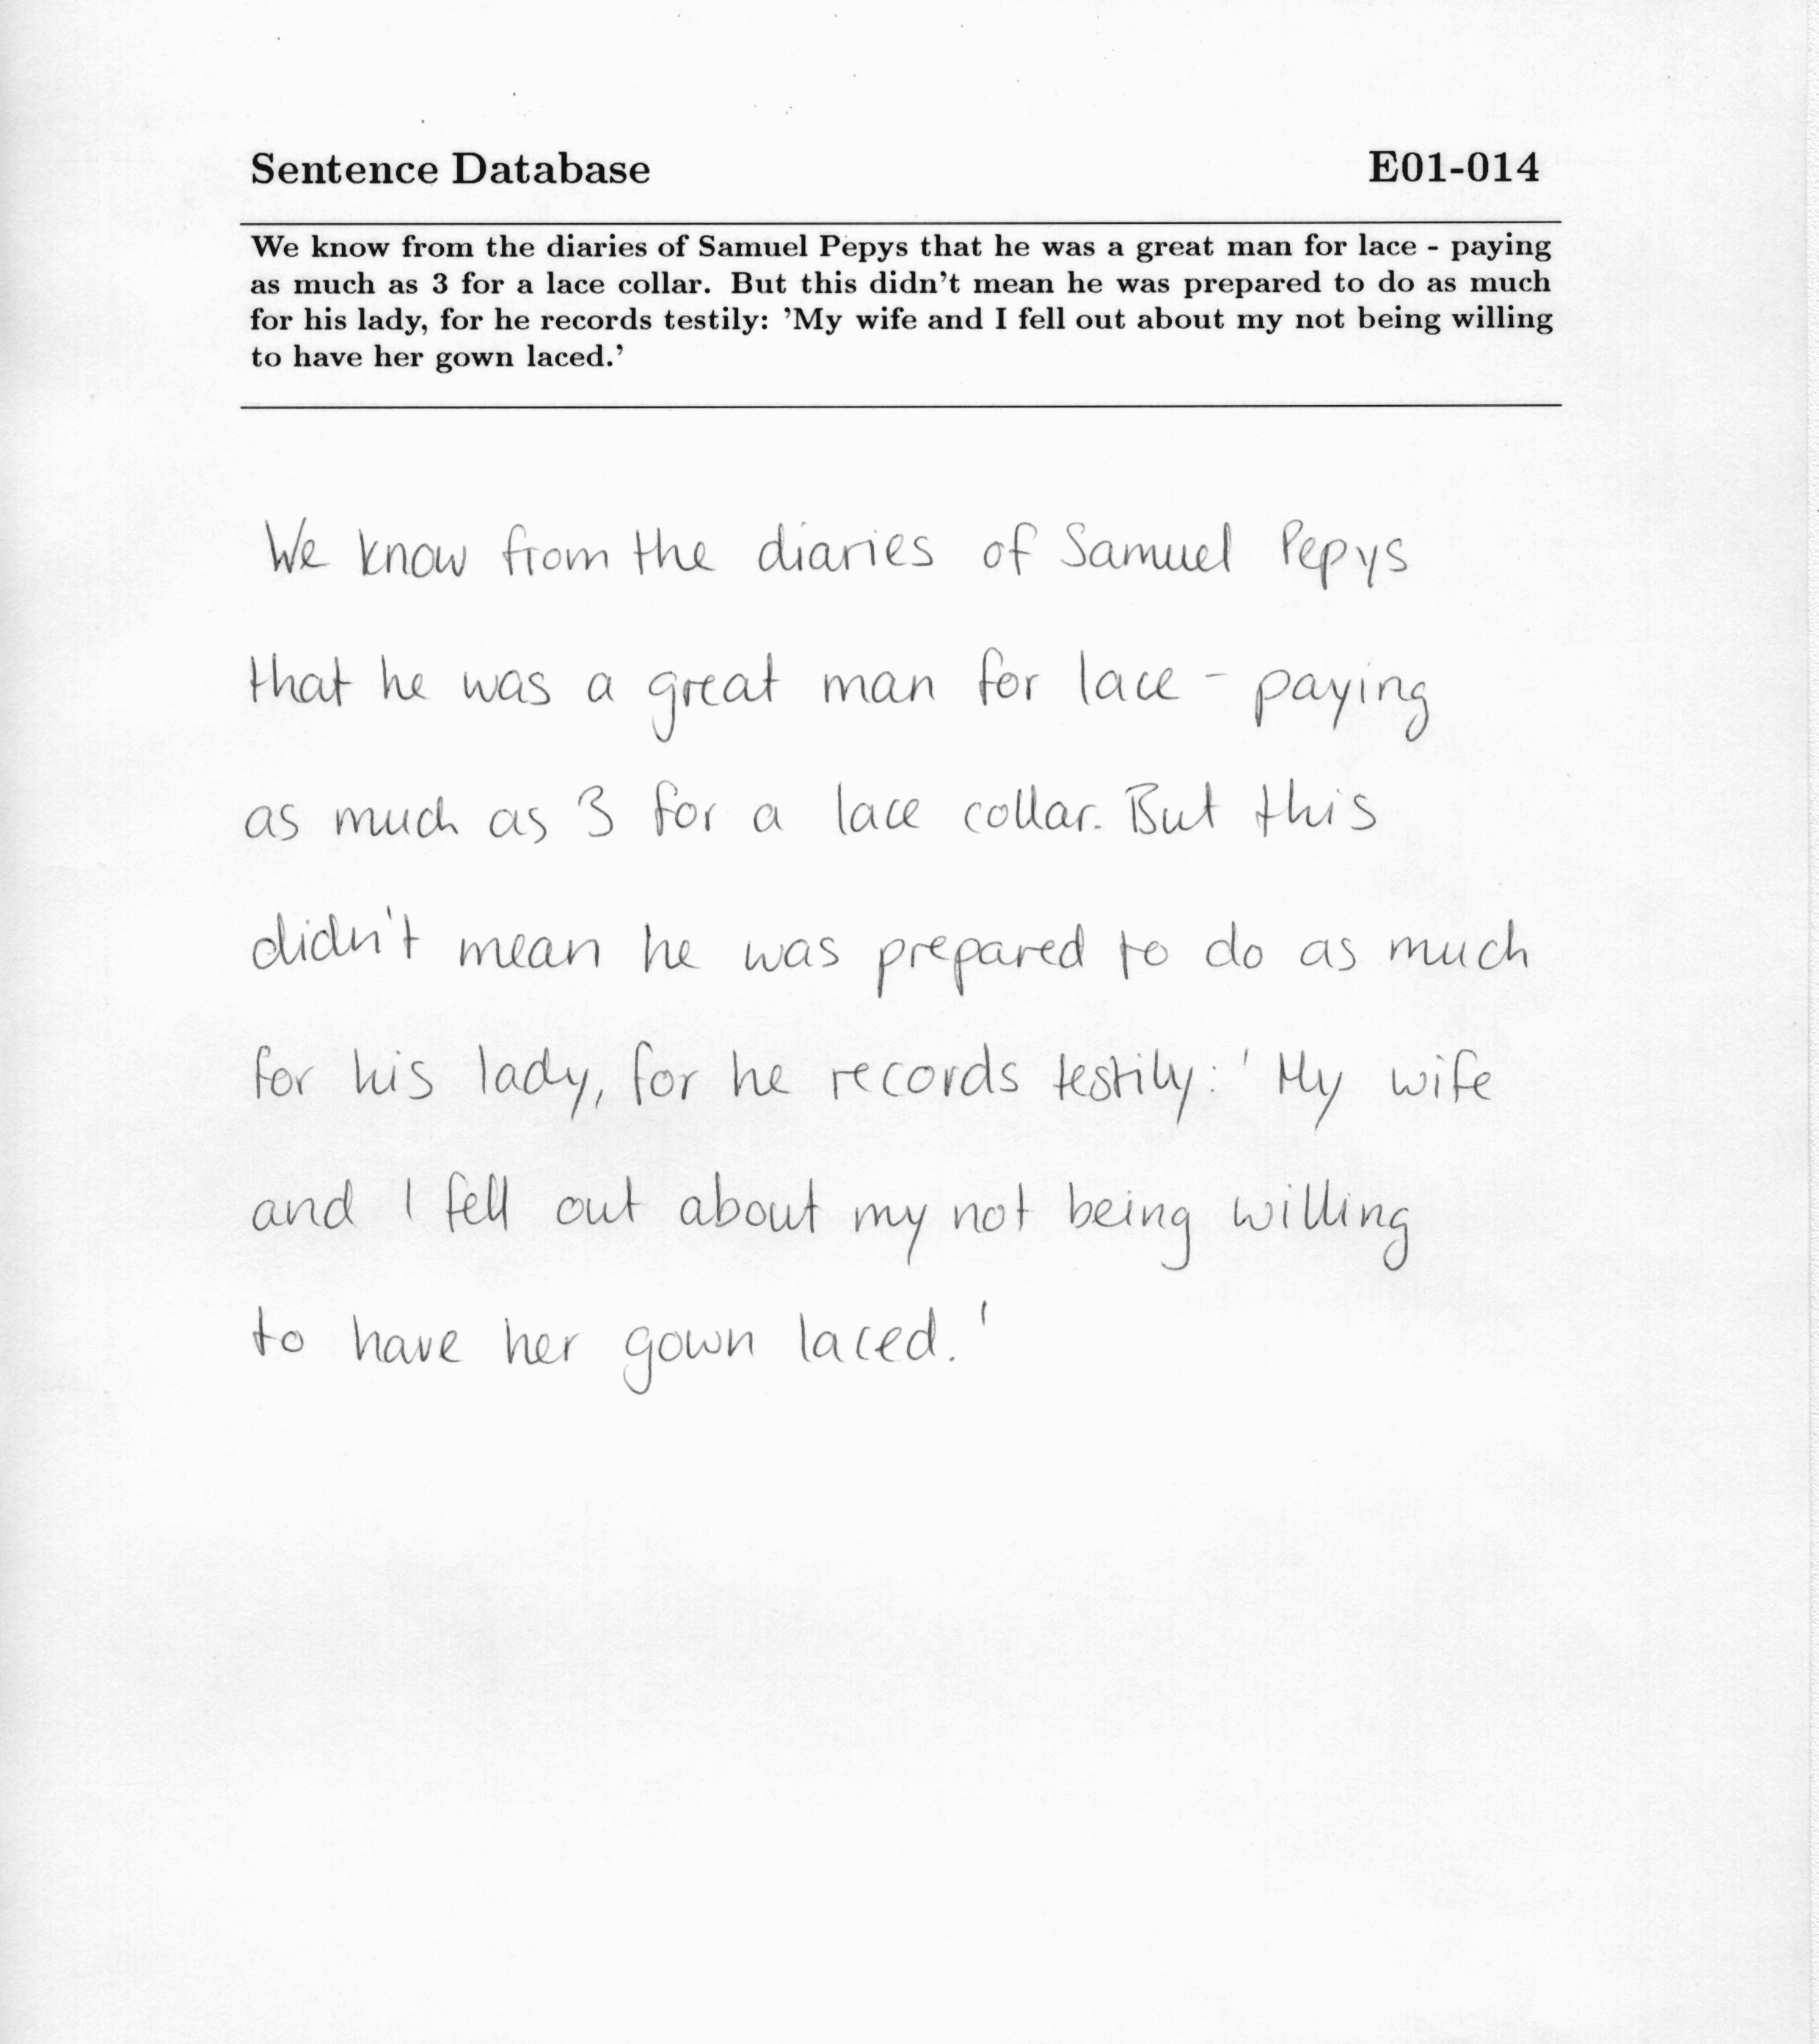 Sentence Database E01-014
We know from the diaries of Samuel Pepys that he was a great man for lace - paying
as much as 3 for a lace collar. But this didn't mean he was prepared to do as much
for his lady, for he records testily: 'My wife and I fell out about my not being willing
to have her gown laced.'
We know from the diaries of Samuel Pepys
that he was a great man for lace - paying
as much as 3 for a lace collar. But this
didn't mean he was prepared to do as much
for his lady, for he records testily: 'My wife
and I fell out about my not being willing
to have her gown laced.'